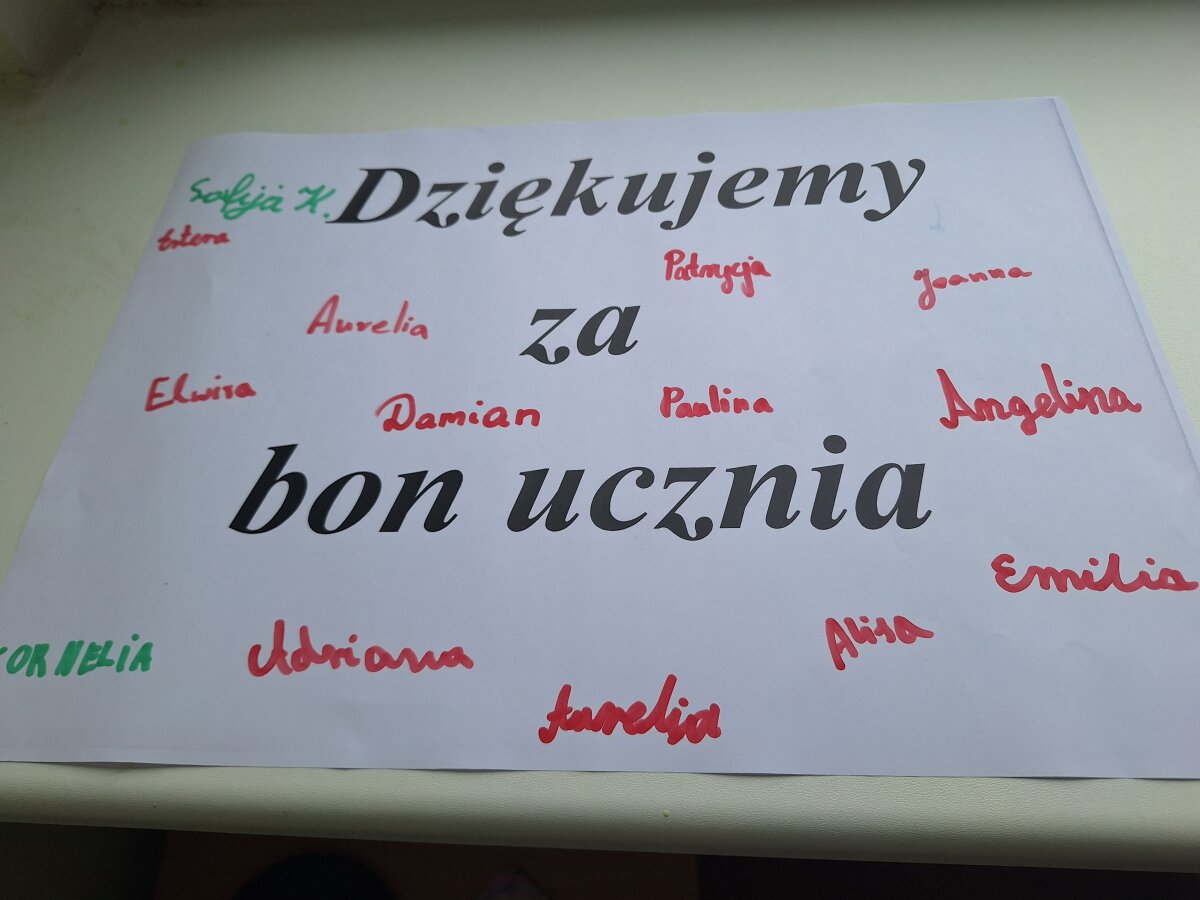 Sofija K. Dziękujemy
Estera
Patrycja Joanna
Aurelia za
Elwira Damian Paulina Angelina
bon ucznia
Emilia
ORNELIA Adriana Alisa
Aurelija